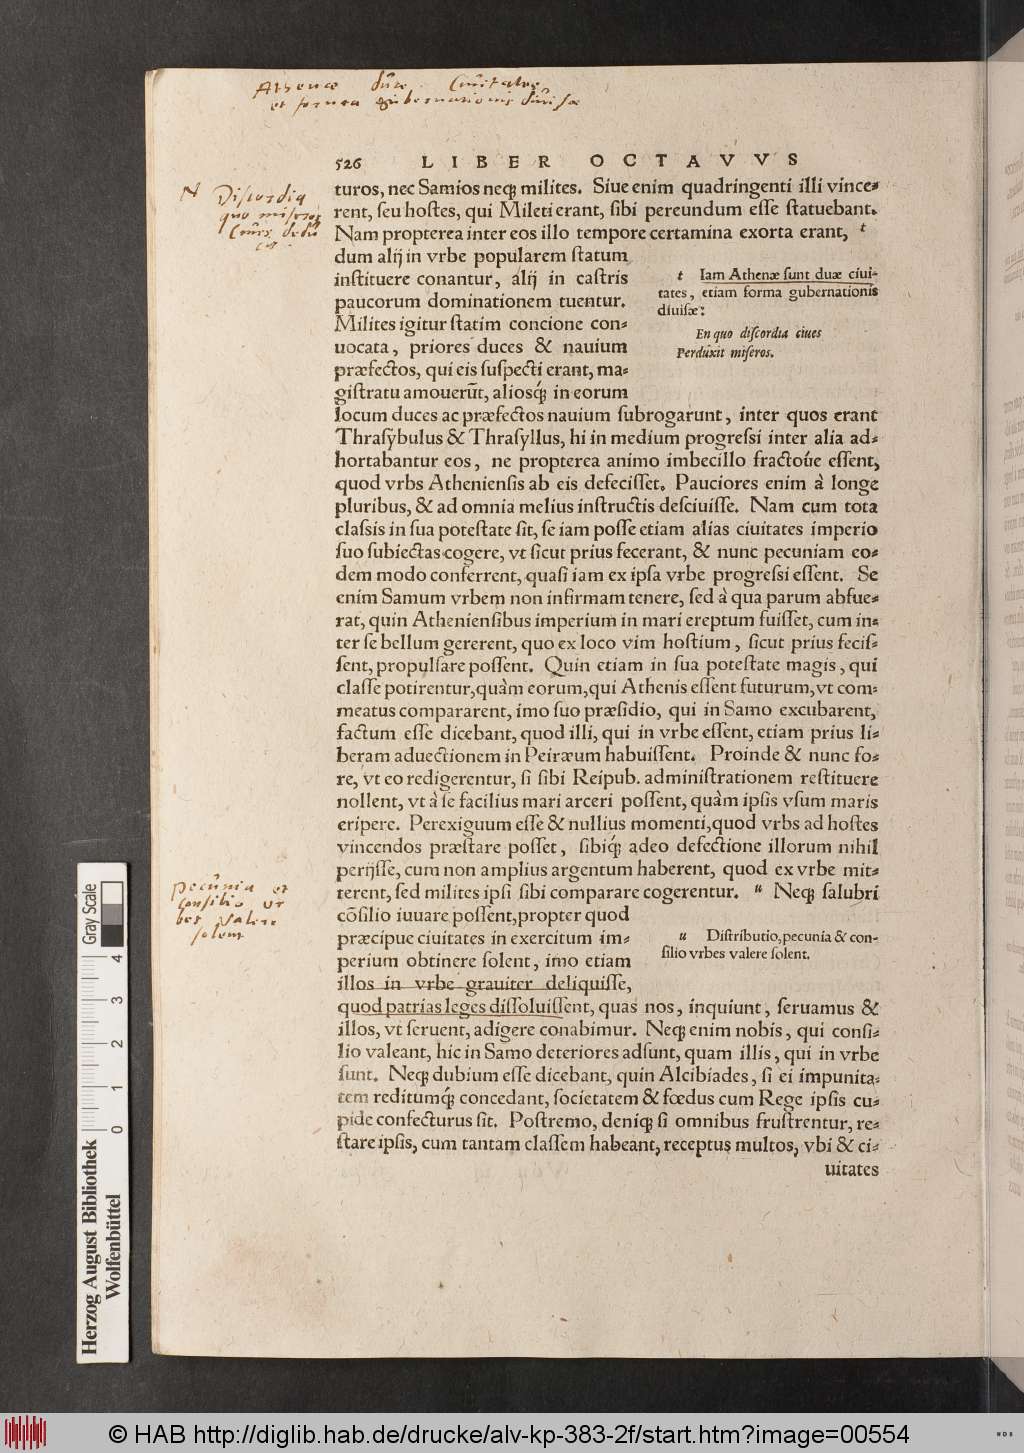 Athenæ duæ Ciuitates
et forma gubernationis diuisæ
526 LIBER OCTAVVS
N Discordia
quo miseros
Ciues dedu
cit
turos, nec Samios neq́; milites. Siue enim quadringenti illi vince⸗
rent, ſeu hoſtes, qui Mileti erant, ſibi pereundum eſſe ſtatuebant.
Nam propterea inter eos illo tempore certamina exorta erant, t
dum alij in vrbe popularem ſtatum
inſtituere conantur, alij in caſtris
paucorum dominationem tuentur.
Milites igitur ſtatim concione con⸗
uocata, priores duces & nauium
præfectos, qui eis ſuſpecti erant, ma⸗
giſtratu amouerũt, aliosq́; in eorum
t Iam Athenæ ſunt duæ ciui⸗
tates, etiam forma gubernationis
diuiſæ:
En quo diſcordia ciues
Perduxit miſeros.
locum duces ac præfectos nauium ſubrogarunt, inter quos erant
Thraſybulus & Thraſyllus, hi in medium progreſsi inter alia ad⸗
hortabantur eos, ne propterea animo imbecillo fractoúe eſſent,
quod vrbs Athenienſis ab eis defeciſſet. Pauciores enim à longe
pluribus, & ad omnia melius inſtructis deſciuiſſe. Nam cum tota
claſsis in ſua poteſtate ſit, ſe iam poſſe etiam alias ciuitates imperio
ſuo ſubiectas cogere, vt ſicut prius fecerant, & nunc pecuniam eo⸗
dem modo conferrent, quaſi iam ex ipſa vrbe progreſsi eſſent. Se
enim Samum vrbem non infirmam tenere, ſed à qua parum abfue⸗
rat, quin Athenienſibus imperium in mari ereptum fuiſſet, cum in⸗
ter ſe bellum gererent, quo ex loco vim hoſtium, ſicut prius feciſ⸗
ſent, propulſare poſſent. Quin etiam in ſua poteſtate magis, qui
claſſe potirentur, quàm eorum, qui Athenis eſſent futurum, vt com⸗
meatus compararent, imo ſuo præſidio, qui in Samo excubarent,
factum eſſe dicebant, quod illi, qui in vrbe eſſent, etiam prius li⸗
beram aduectionem in Peiræum habuiſſent. Proinde & nunc fo⸗
re, vt eo redigerentur, ſi ſibi Reipub. adminiſtrationem reſtituere
nollent, vt à ſe facilius mari arceri poſſent, quàm ipſis vſum maris
eripere. Perexiguum eſſe & nullius momenti, quod vrbs ad hoſtes
vincendos præſtare poſſet, ſibiq́; adeo defectione illorum nihil
perijſſe, cum non amplius argentum haberent, quod ex vrbe mit⸗
terent, ſed milites ipſi ſibi comparare cogerentur. u Neq́; ſalubri
Pecunia et
consilio vr
bes valere
solent
cõſilio iuuare poſſent, propter quod
præcipue ciuitates in exercitum im⸗
perium obtinere ſolent, imo etiam
illos in vrbe grauiter deliquiſſe,
u Diſtributio, pecunia & con⸗
ſilio vrbes valere ſolent.
quod patrias leges diſſoluiſſent, quas nos, inquiunt, ſeruamus &
illos, vt ſeruent, adigere conabimur. Neq́; enim nobis, qui conſi⸗
lio valeant, hic in Samo deteriores adſunt, quam illis, qui in vrbe
ſunt. Neq́; dubium eſſe dicebant, quin Alcibiades, ſi ei impunita⸗
tem reditumq́; concedant, ſocietatem & fœdus cum Rege ipſis cu⸗
pide confecturus ſit. Poſtremo, deniq́; ſi omnibus fruſtrentur, re⸗
ſtare ipſis, cum tantam claſſem habeant, receptus multos, vbi & ci⸗
uitates
Gray Scale
0 1 2 3 4
Herzog August Bibliothek
Wolfenbüttel
© HAB http://diglib.hab.de/drucke/alv-kp-383-2f/start.htm?image=00554